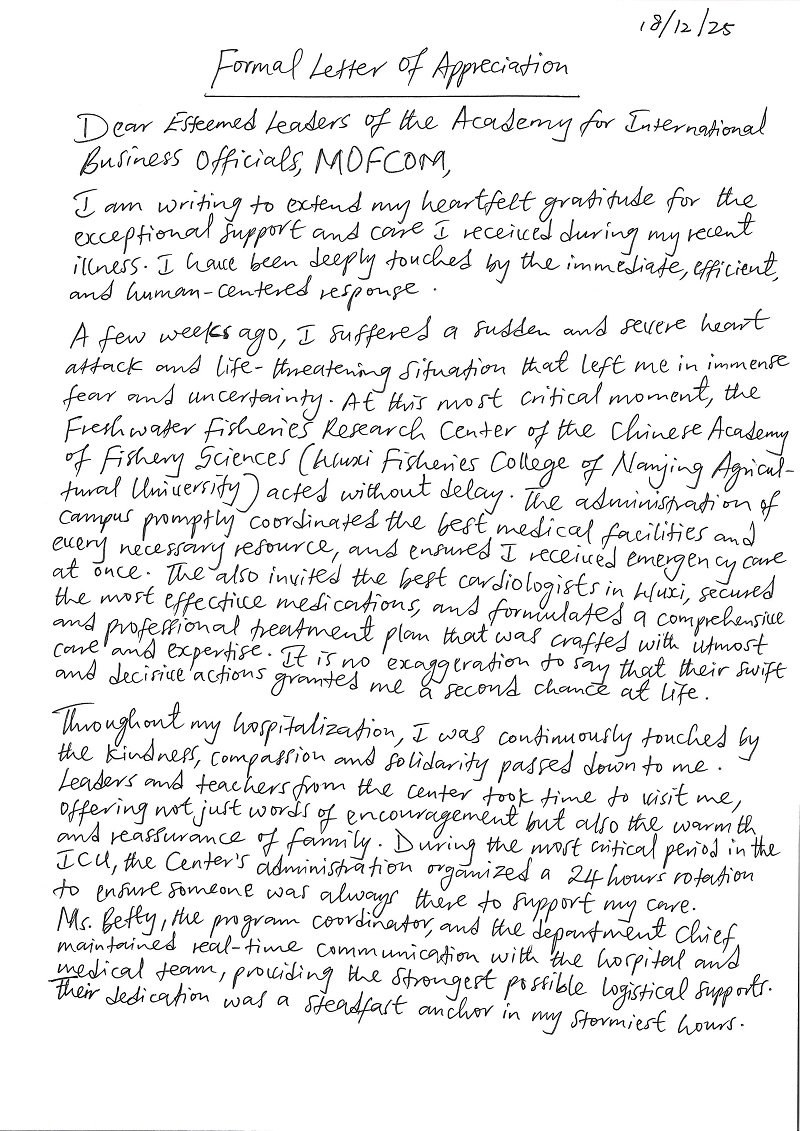 18/12/25
Formal Letter of Appreciation
Dear Esteemed Leaders of the Academy for International
Business Officials, MOFCOM,
I am writing to extend my heartfelt gratitude for the
exceptional support and care I received during my recent
illness. I have been deeply touched by the immediate, efficient,
and human-centered response.
A few weeks ago, I suffered a sudden and severe heart
attack and life-threatening situation that left me in immense
fear and uncertainty. At this most critical moment, the
Freshwater Fisheries Research Center of the Chinese Academy
of Fishery Sciences (Wuxi Fisheries College of Nanjing Agricul-
tural University) acted without delay. The administration of
campus promptly coordinated the best medical facilities and
every necessary resource, and ensured I received emergency care
at once. The also invited the best cardiologists in Wuxi, secured
the most effective medications, and formulated a comprehensive
and professional treatment plan that was crafted with utmost
care and expertise. It is no exaggeration to say that their swift
and decisive actions granted me a second chance at life.
Throughout my hospitalization, I was continuously touched by
the kindness, compassion and solidarity passed down to me.
Leaders and teachers from the center took time to visit me,
offering not just words of encouragement but also the warmth
and reassurance of family. During the most critical period in the
ICU, the Center's administration organized a 24 hours rotation
to ensure someone was always there to support my care.
Ms. Betty, the program coordinator, and the department chief
maintained real-time communication with the hospital and
medical team, providing the strongest possible logistical supports.
Their dedication was a steadfast anchor in my stormiest hours.